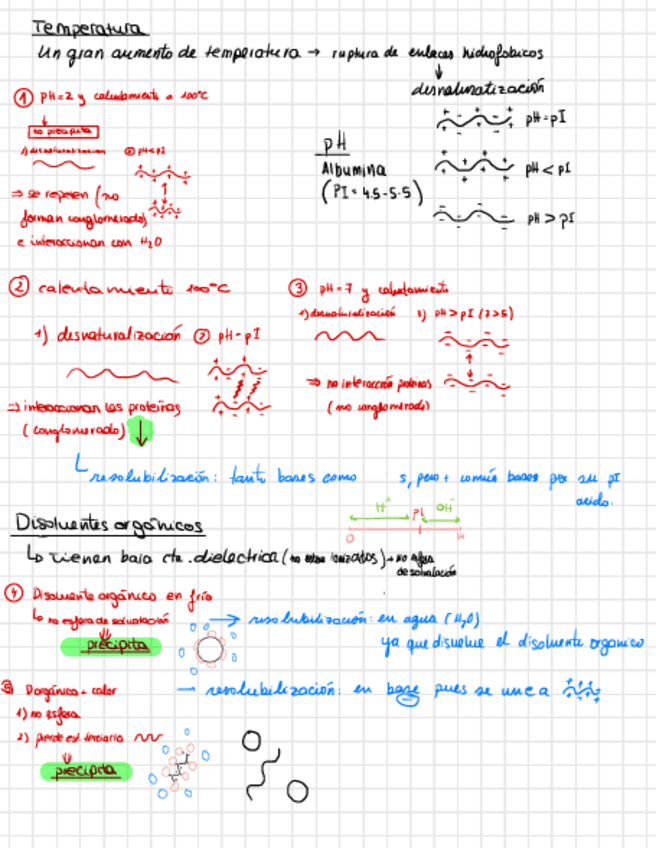 Temperatura
Un gran aumento de temperatura → ruptura de enlaces hidrofobicos
↓
desnaturalización
① pH=2 y calentamiento a 100°C
↓
no precipita
1) desnaturalización ② pH<pI
⇒ se repelen (no
forman conglomerado)
e interaccionan con H₂O
pH
Albumina
(PI = 4.5-5.5)
pH=pI
pH < pI
pH > pI
② calentamiento 100°C
1) desnaturalización ② pH=pI
⇒ interaccionan las proteinas
(conglomerado) ↓
③ pH=7 y calentamiento
1) desnaturalización 2) pH>pI (7>5)
⇒ no interacción proteinas
(no conglomerado)
resolubilización: tanto bases como s, pero + común bases por su pI
acido.
H⁺ PI OH⁻
0 14
Disolventes orgánicos
↳ tienen baja cte. dielectrica (no estan ionizados) → no esfera
de solvatación
④ Disolvente orgánico en frío
↳ no esfera de solvatación
precipita
→ resolubilización: en agua (H₂O)
ya que disuelve el disolvente organico
⑤ D.orgánico + calor
1) no esfera
2) pierde est. terciaria
precipita
→ resolubilización: en base pues se une a